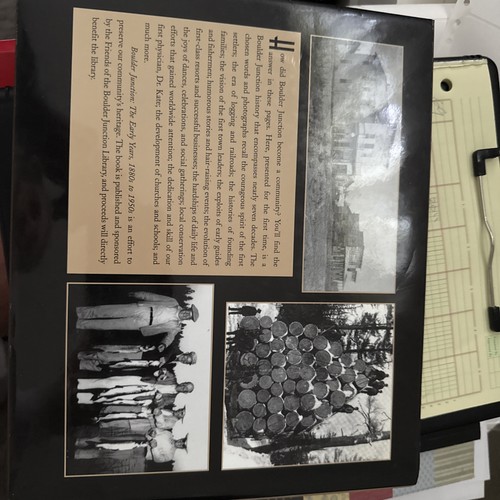 How did Boulder Junction become a community? You'll find the
answer in these pages. Here, presented for the first time, is a
Boulder Junction history that encompasses nearly seven decades. The
chosen words and photographs recall the courageous spirit of the first
settlers; the era of logging and railroads; the histories of founding
families; the vision of the first town leaders; the exploits of early guides
and fishermen; humorous stories and hair-raising events; the evolution of
first-class resorts and successful businesses; the hardships of daily life and
the joys of dances, celebrations, and social gatherings; local conservation
efforts that gained worldwide attention; the dedication and skill of our
first physician, Dr. Kate; the development of churches and schools; and
much more.
Boulder Junction: The Early Years, 1880s to 1950s is an effort to
preserve our community's heritage. The book is published and sponsored
by the Friends of the Boulder Junction Library, and proceeds will directly
benefit the library.